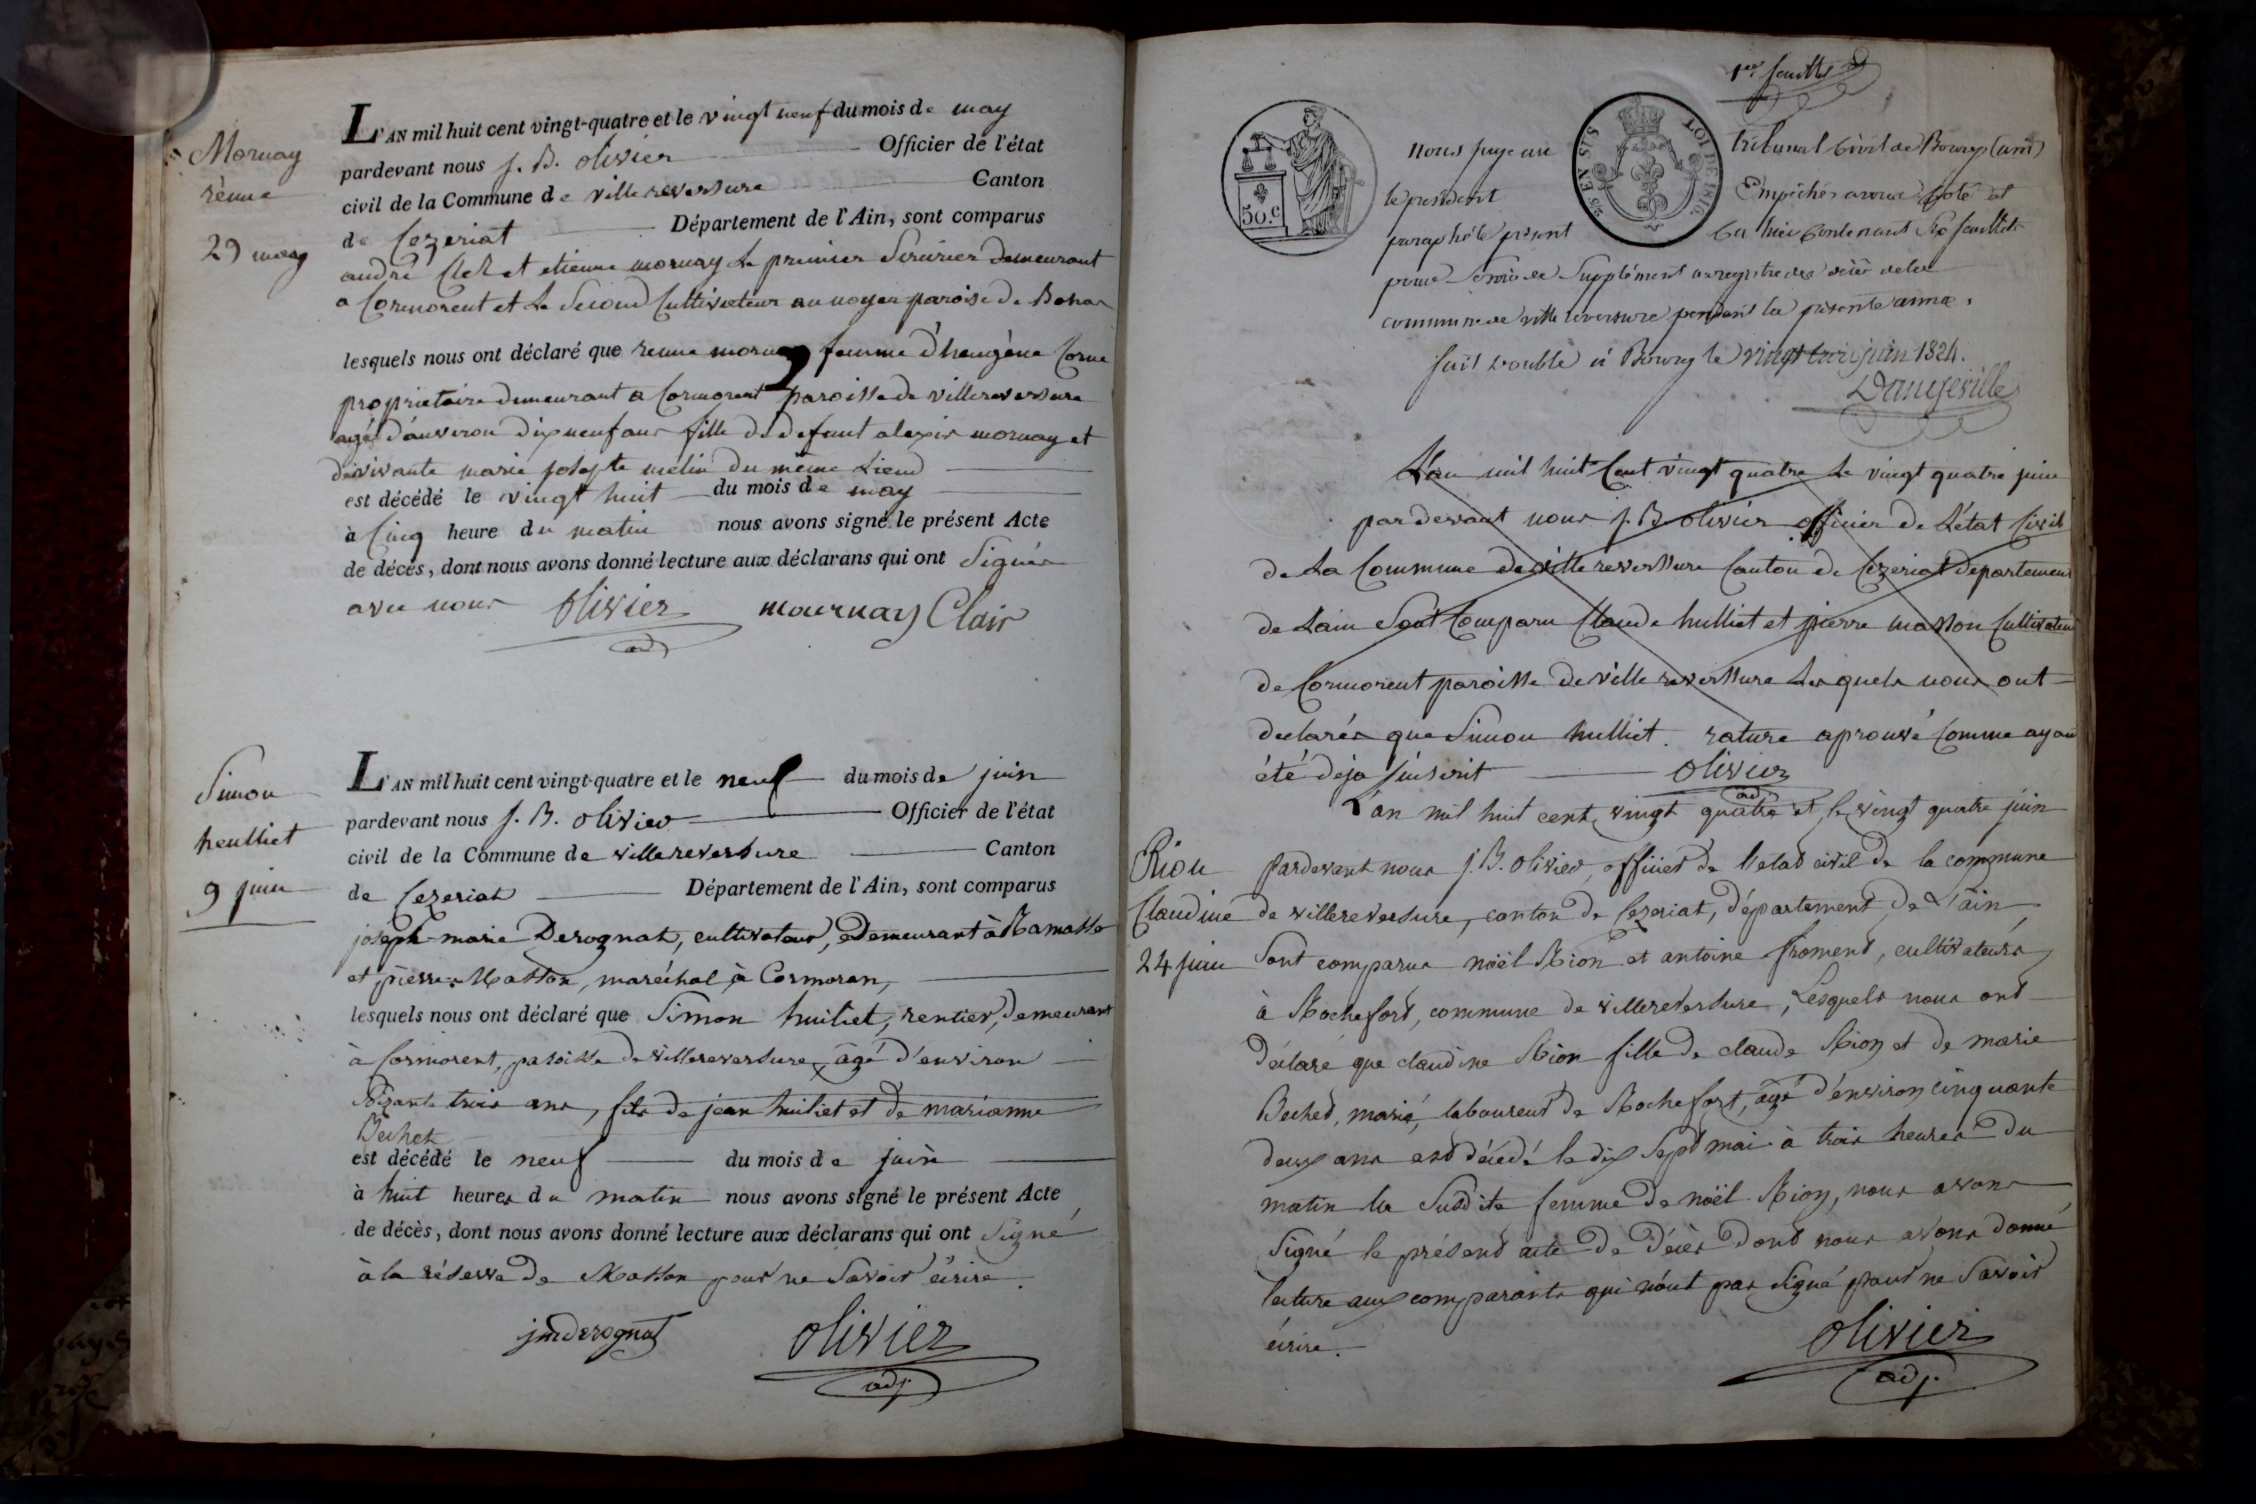 Mornay
rènne
29 may
L'AN mil huit cent vingt-quatre et le vingt neuf du mois de may
pardevant nous J. B. olivier Officier de l'état
civil de la Commune de villereversure Canton
de Cezeriat Département de l'Ain, sont comparus
andré Cler et etienne mornay Le premier Serurier demeurant
a Cormorent et Le Second Cultivateur au noyer paroise de Bohas
lesquels nous ont déclaré que renne mornay femme d'heugène Corne
proprietaire demeurant a Cormorent paroisse de villereversure
agée d'anviron dix neuf ans fille de defunt alexis mornay et
de vivante marie josepte melin du même Lieud
est décédé le vingt huit du mois de may
à Cinq heure du matin nous avons signé le présent Acte
de décès, dont nous avons donné lecture aux déclarans qui ont Signés
avec nous olivier mournay Clair
Simon
heulliet
9 juin
L'AN mil huit cent vingt-quatre et le neuf du mois de juin
pardevant nous J. B. olivier Officier de l'état
civil de la Commune de villereversure Canton
de Cezeriat Département de l'Ain, sont comparus
joseph marie Derognat, cultivateur, demeurant à Ramasse
et pierre Masson, maréchal à Cormoran,
lesquels nous ont déclaré que Simon huiliet, rentier, demeurant
à Cormorent, paroisse de villereversure, âgé d'environ
Soixante trois ans, fils de jean huiliet et de marianne
Bechet
est décédé le neuf du mois de juin
à huit heures du matin nous avons signé le présent Acte
de décès, dont nous avons donné lecture aux déclarans qui ont Signé
à la réserve de Masson pour ne Savoir écrire.
jmderognat olivier
adj.
1er feuillet
50 c
25 EN SUS
LOI DE 1816.
nous juge au tribunal Civil de Bourg (ain)
le président Empêché avons coté et
paraphé le présent Cahier Contenant Six feuillets
pour Servir de Supplément au registre des décès de la
commune de ville reversure pendant la présente année.
fait double à Bourg le vingt trois juin 1824.
Dangeville
L'an mil huit Cent vingt quatre Le vingt quatre juin
par devant nous J. B. olivier officier de L'état Civil
de La Commune de ville reverssure Canton de Cezeriat departement
de Lain Sont Comparu Claude hulliet et pierre masson Cultivateur
de Cormorent paroisse de ville reverssure Lesquels nous ont
declarés que Simon hulliet. rature aprouvé Comme ayan
été déja inscrit olivier
adj
Rion
Claudine
24 juin
L'an mil huit cent vingt quatre et le vingt quatre juin
pardevant nous J. B. olivier, officier de l'etat civil de la commune
de villereversure, canton de Cezeriat, département de L'ain,
Sont comparus noël Rion et antoine froment, cultivateurs
à Rochefort, commune de villereversure, Lesquels nous ont
déclaré que claudine Rion fille de claude Rion et de marie
Bechet, marié, laboureur de Rochefort, âgé d'environ cinquante
deux ans est décédé le dix Sept mai à trois heures du
matin la Susdite femme de noël Rion, nous avons
Signé le présent acte de décès dont nous avons donné
lecture aux comparants qui n'ont pas Signé pour ne Savoir
écrire.
olivier
adj.